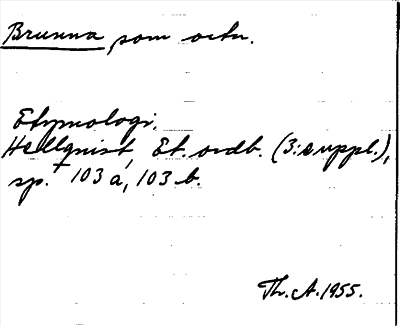 Brunna som ortn.
Etymologi.
Hellquist, Et. ordb. (3: suppl.),
sp. 103 a, 103 b.
Th. A. 1955.